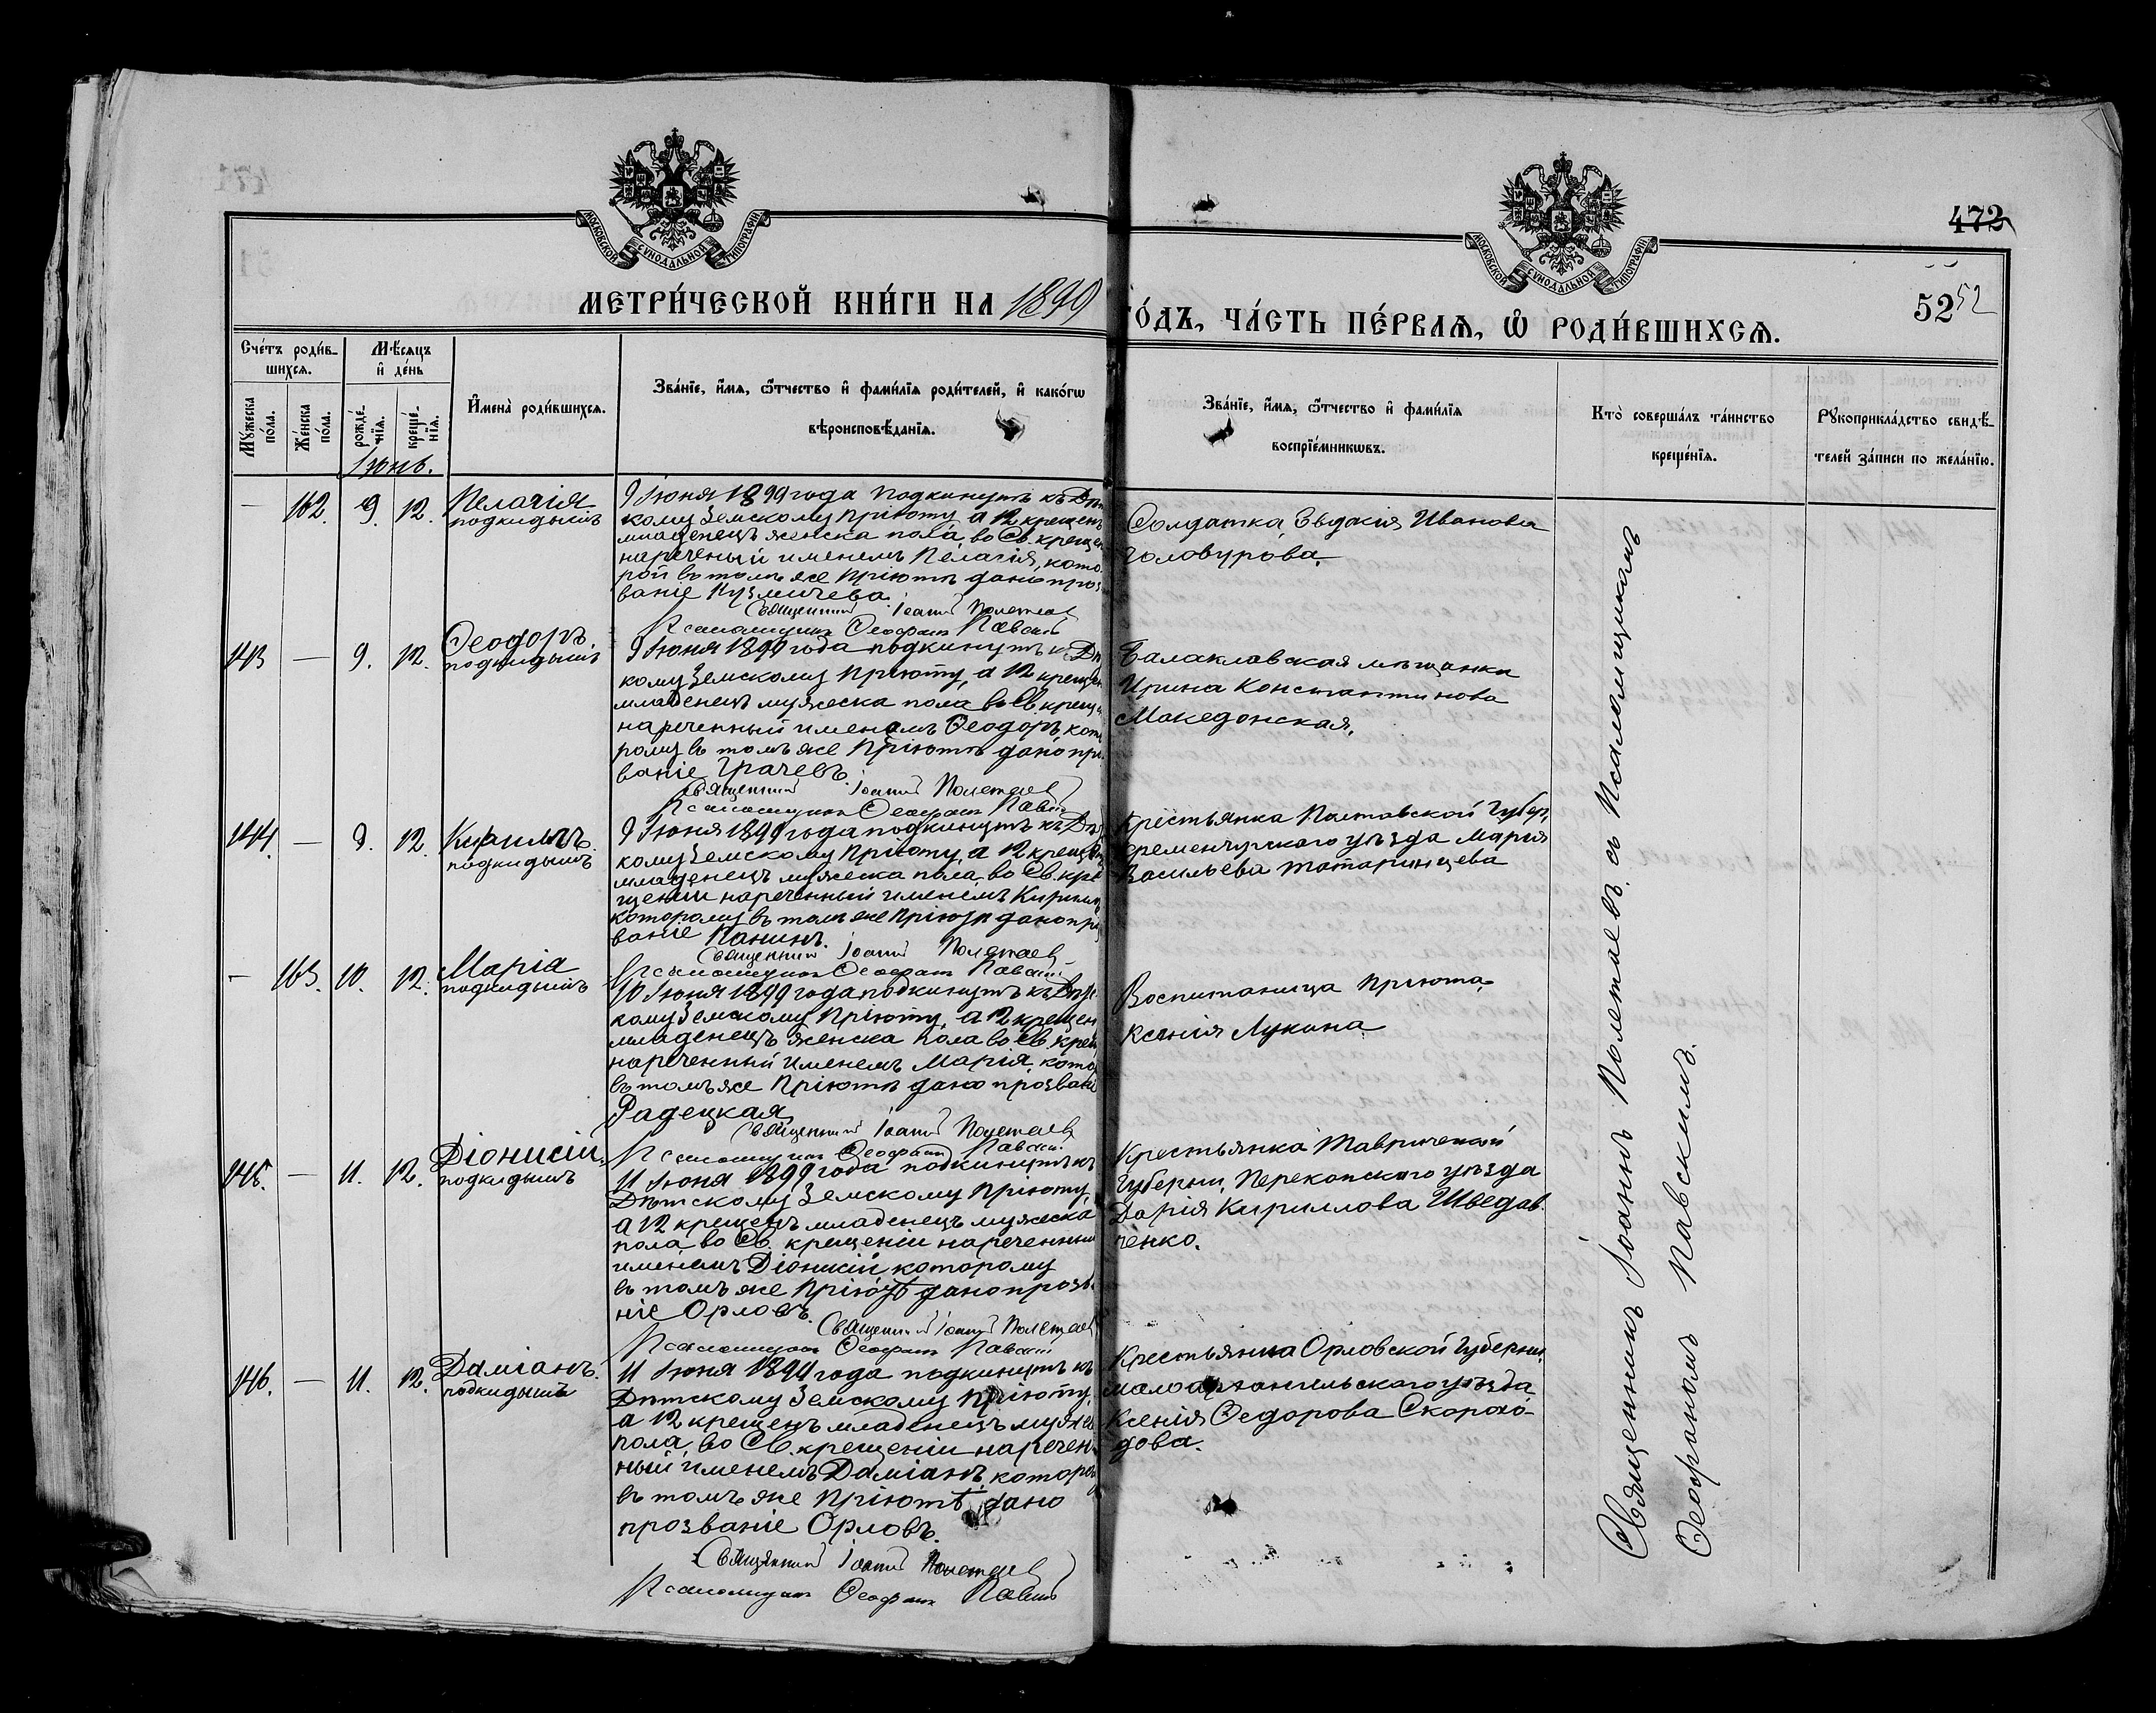 МОСКОВСКОЙ СѴНОДАЛЬНОЙ ТИПОГРАФІИ
МОСКОВСКОЙ СѴНОДАЛЬНОЙ ТИПОГРАФІИ
472
52 52
МЕТРИ́ЧЕСКОЙ КНИ́ГИ НА 1899
ГО́ДЪ, ЧА́СТЬ ПЕ́РВАѦ, Ѽ РОДИ́ВШИХСѦ.
Сче́тъ роди́в-
шихсѧ.
Мѣ́сѧцъ
и҆ де́нь
Мꙋ́жеска
по́ла.
Же́нска
по́ла.
рожде́-
нїѧ.
креще́-
нїѧ.
И҆мена̀ роди́вшихсѧ.
Зва́нїе, и҆́мѧ, ѻ҆́тчество и҆ фами́лїѧ роди́телей, и҆ како́гѡ
вѣроисповѣ́данїѧ.
Зва́нїе, и҆́мѧ, ѻ҆́тчество и҆ фами́лїѧ
воспрїе́мникѡвъ.
Кто̀ соверша́лъ та́инство
креще́нїѧ.
Рꙋкоприкла́дство свидѣ́-
телей за́писи по жела́нїю.
Іюнь.
— 162. 9. 12. Пелагія
подкидышъ
9 Іюня 1899 года подкинутъ къ Дѣт
кому Земскому Пріюту, а 12 крещенъ
младенецъ женска пола, во Св. крещен
нареченый именемъ Пелагія, кото
рой въ томъ же Пріютѣ дано проз
ваніе Кузмичева.
Священникъ Іоаннъ Полетаевъ
Псаломщикъ Ѳеофанъ Павскій
Солдатка, Евдокія Иванова
Головурова.
143 — 9. 12. Ѳеодоръ.
подкидышъ
9 Іюня 1899 года подкинутъ къ Дѣ
кому Земскому Пріюту, а 12 крещен
младенецъ мужеска пола во Св. крещ
нареченный именемъ Ѳеодоръ, кото
рому въ томъ же Пріютѣ дано про
ваніе Грачевъ.
Священникъ Іоаннъ Полетаевъ
Псаломщикъ Ѳеофанъ Павскій
Балаклавская мѣщанка
Ирина Константинова
Македонская.
144. — 9. 12. Кириллъ.
подкидышъ
9 Іюня 1899 года подкинутъ къ Дѣ
кому Земскому Пріюту, а 12 крещен
младенецъ мужеска пола во Св. кре
щеніи нареченный именемъ Кириллъ
которому въ томъ же Пріютѣ дано про
ваніе Панинъ.
Священникъ Іоаннъ Полетаевъ
Псаломщикъ Ѳеофанъ Павскій
Крестьянка Полтавской Губер,
Кременчугского уѣзда Марія
Васильева Татаринцева
— 163. 10. 12. Марія
подкидышъ
10 Іюня 1899 года подкинутъ къ Дѣт
кому Земскому Пріюту, а 12 крещен
младенецъ женска пола во Св. крещ
нареченный именемъ Марія, кото
въ томъ же Пріютѣ дано прозвані
Радецкая
Священникъ Іоаннъ Полетаевъ
Псаломщикъ Ѳеофанъ Павскій
Воспитаница Пріюта
Ксенія Лукина
145. — 11. 12. Діонисій.
подкидышъ
11 Іюня 1899 года подкинутъ къ
Дѣтскому Земскому Пріюту,
а 12 крещенъ младенецъ мужеска
пола, во Св. крещеніи нареченный
именемъ Діонисій которому
въ томъ же Пріютѣ дано прозв
ніе Орловъ.
Священникъ Іоаннъ Полетаевъ
Псаломщикъ Ѳеофанъ Павскій
Крестьянка Таврической
Губерніи, Перекопского уѣзда
Дарія Кириллова Шведав
ченко.
146. — 11. 12. Даміанъ.
подкидышъ
11 Іюня 1899 года подкинутъ къ
Дѣтскому Земскому Пріюту,
а 12 крещенъ младенецъ мужес
пола, во Св. крещеніи наречен
ный именемъ Даміанъ, которо
въ томъ же Пріютѣ дано
прозваніе Орловъ.
Священникъ Іоаннъ Полетаевъ
Псаломщикъ Ѳеофанъ Павскій
Крестьянка Орловской Губерніи,
Малоархангельского уѣзда
Ксенія Ѳедорова Скорохо-
дова.
Священникъ Іоаннъ Полетаевъ съ Псаломщикомъ
Ѳеофаномъ Павскимъ.